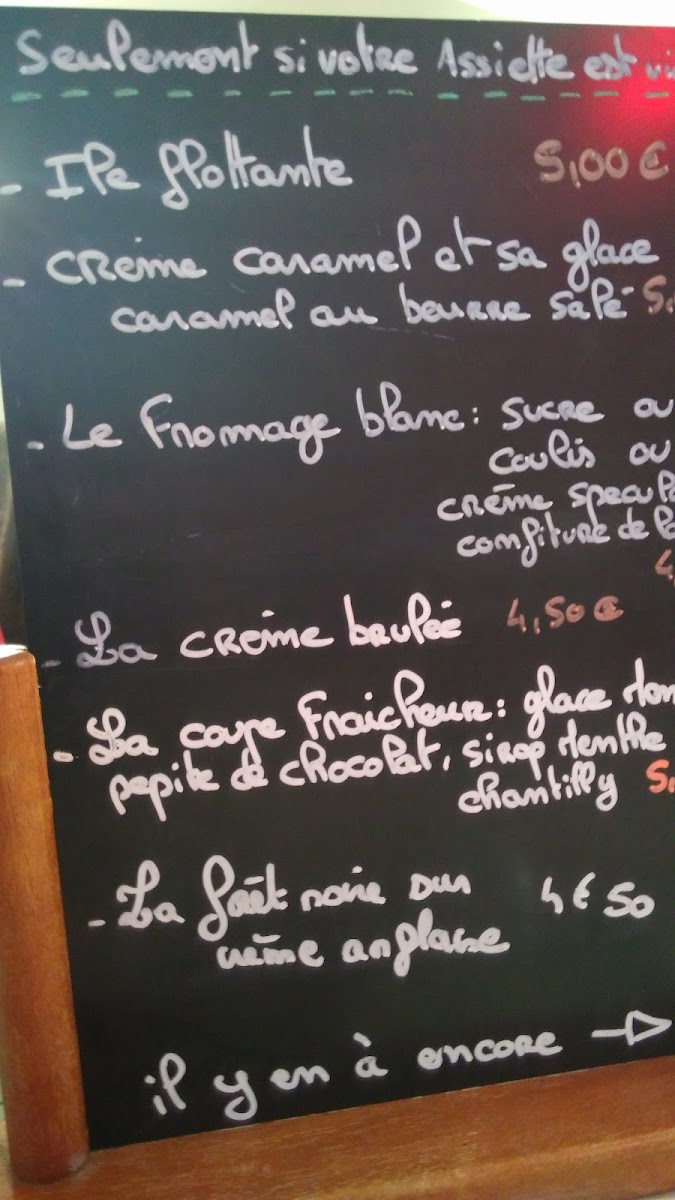 Seulement si votre Assiette est vi
- Ile flottante 5,00 €
- Crème caramel et sa glace
caramel au beurre salé 5,
- Le Fromage blanc: sucre ou
coulis ou
crème specul
confiture de la
4,
- La crème brulée 4,50 €
- La coupe Fraicheur: glace Men
pepite de chocolat, sirop Menthe
chantilly 5,
- La forêt noire sur 4€50
crème anglaise
il y en à encore →